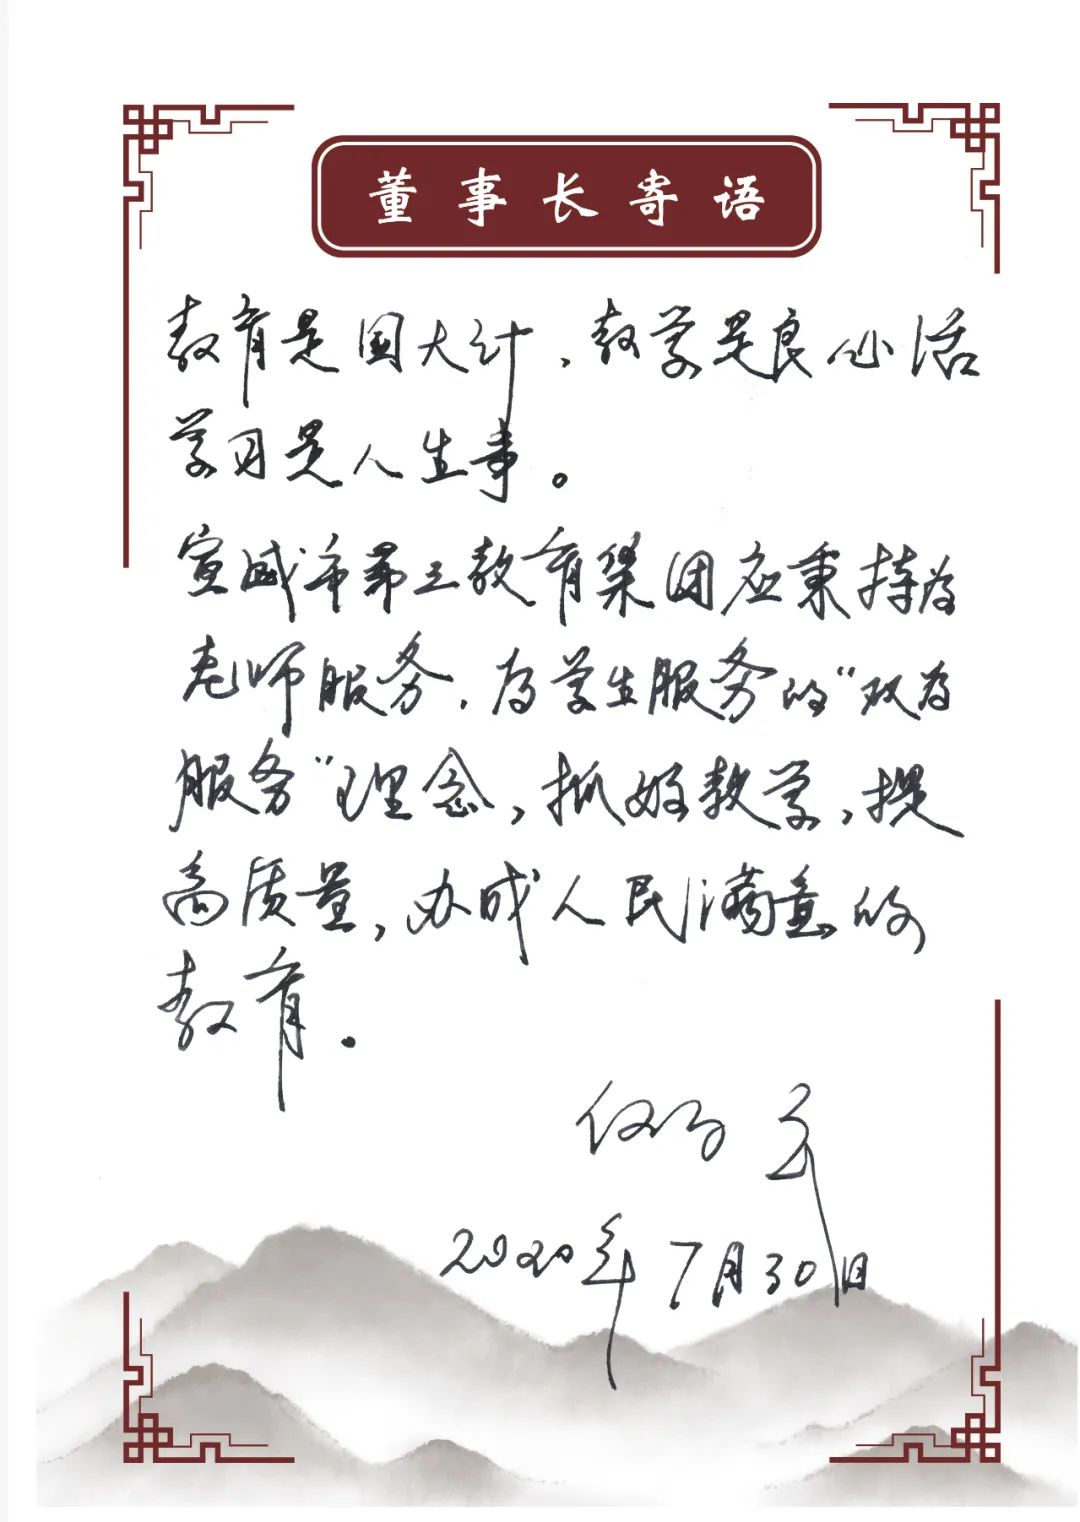 董事长寄语
教育是国大计，教学是良心活
学习是人生事。
宣威市第三教育集团应秉持为
老师服务，为学生服务的“双为
服务”理念，抓好教学，提
高质量，办成人民满意的
教育。
2020年7月30日